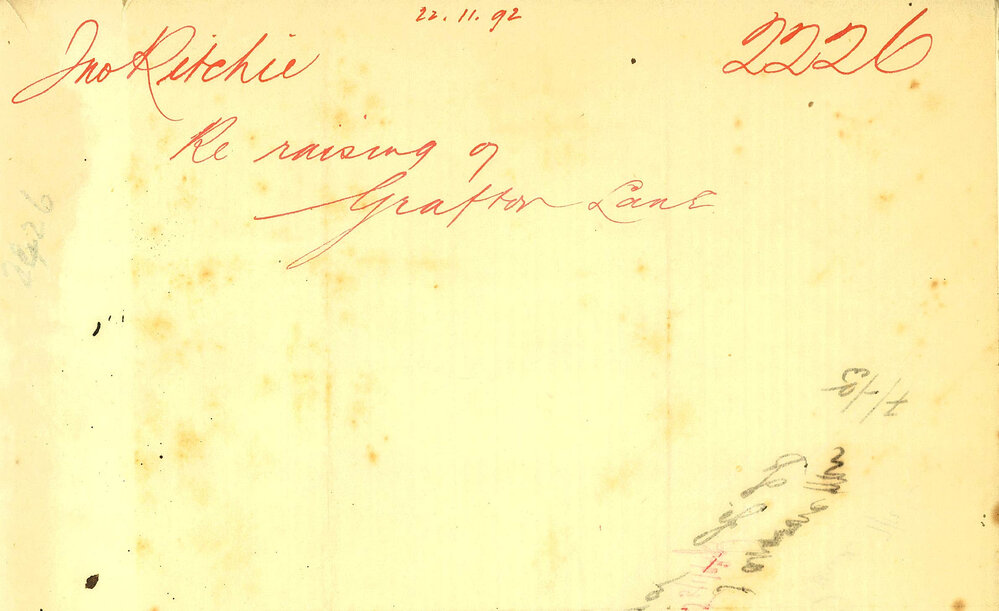 22.11.92
Jno Ritchie
2226
Re raising of
Grafton Lane